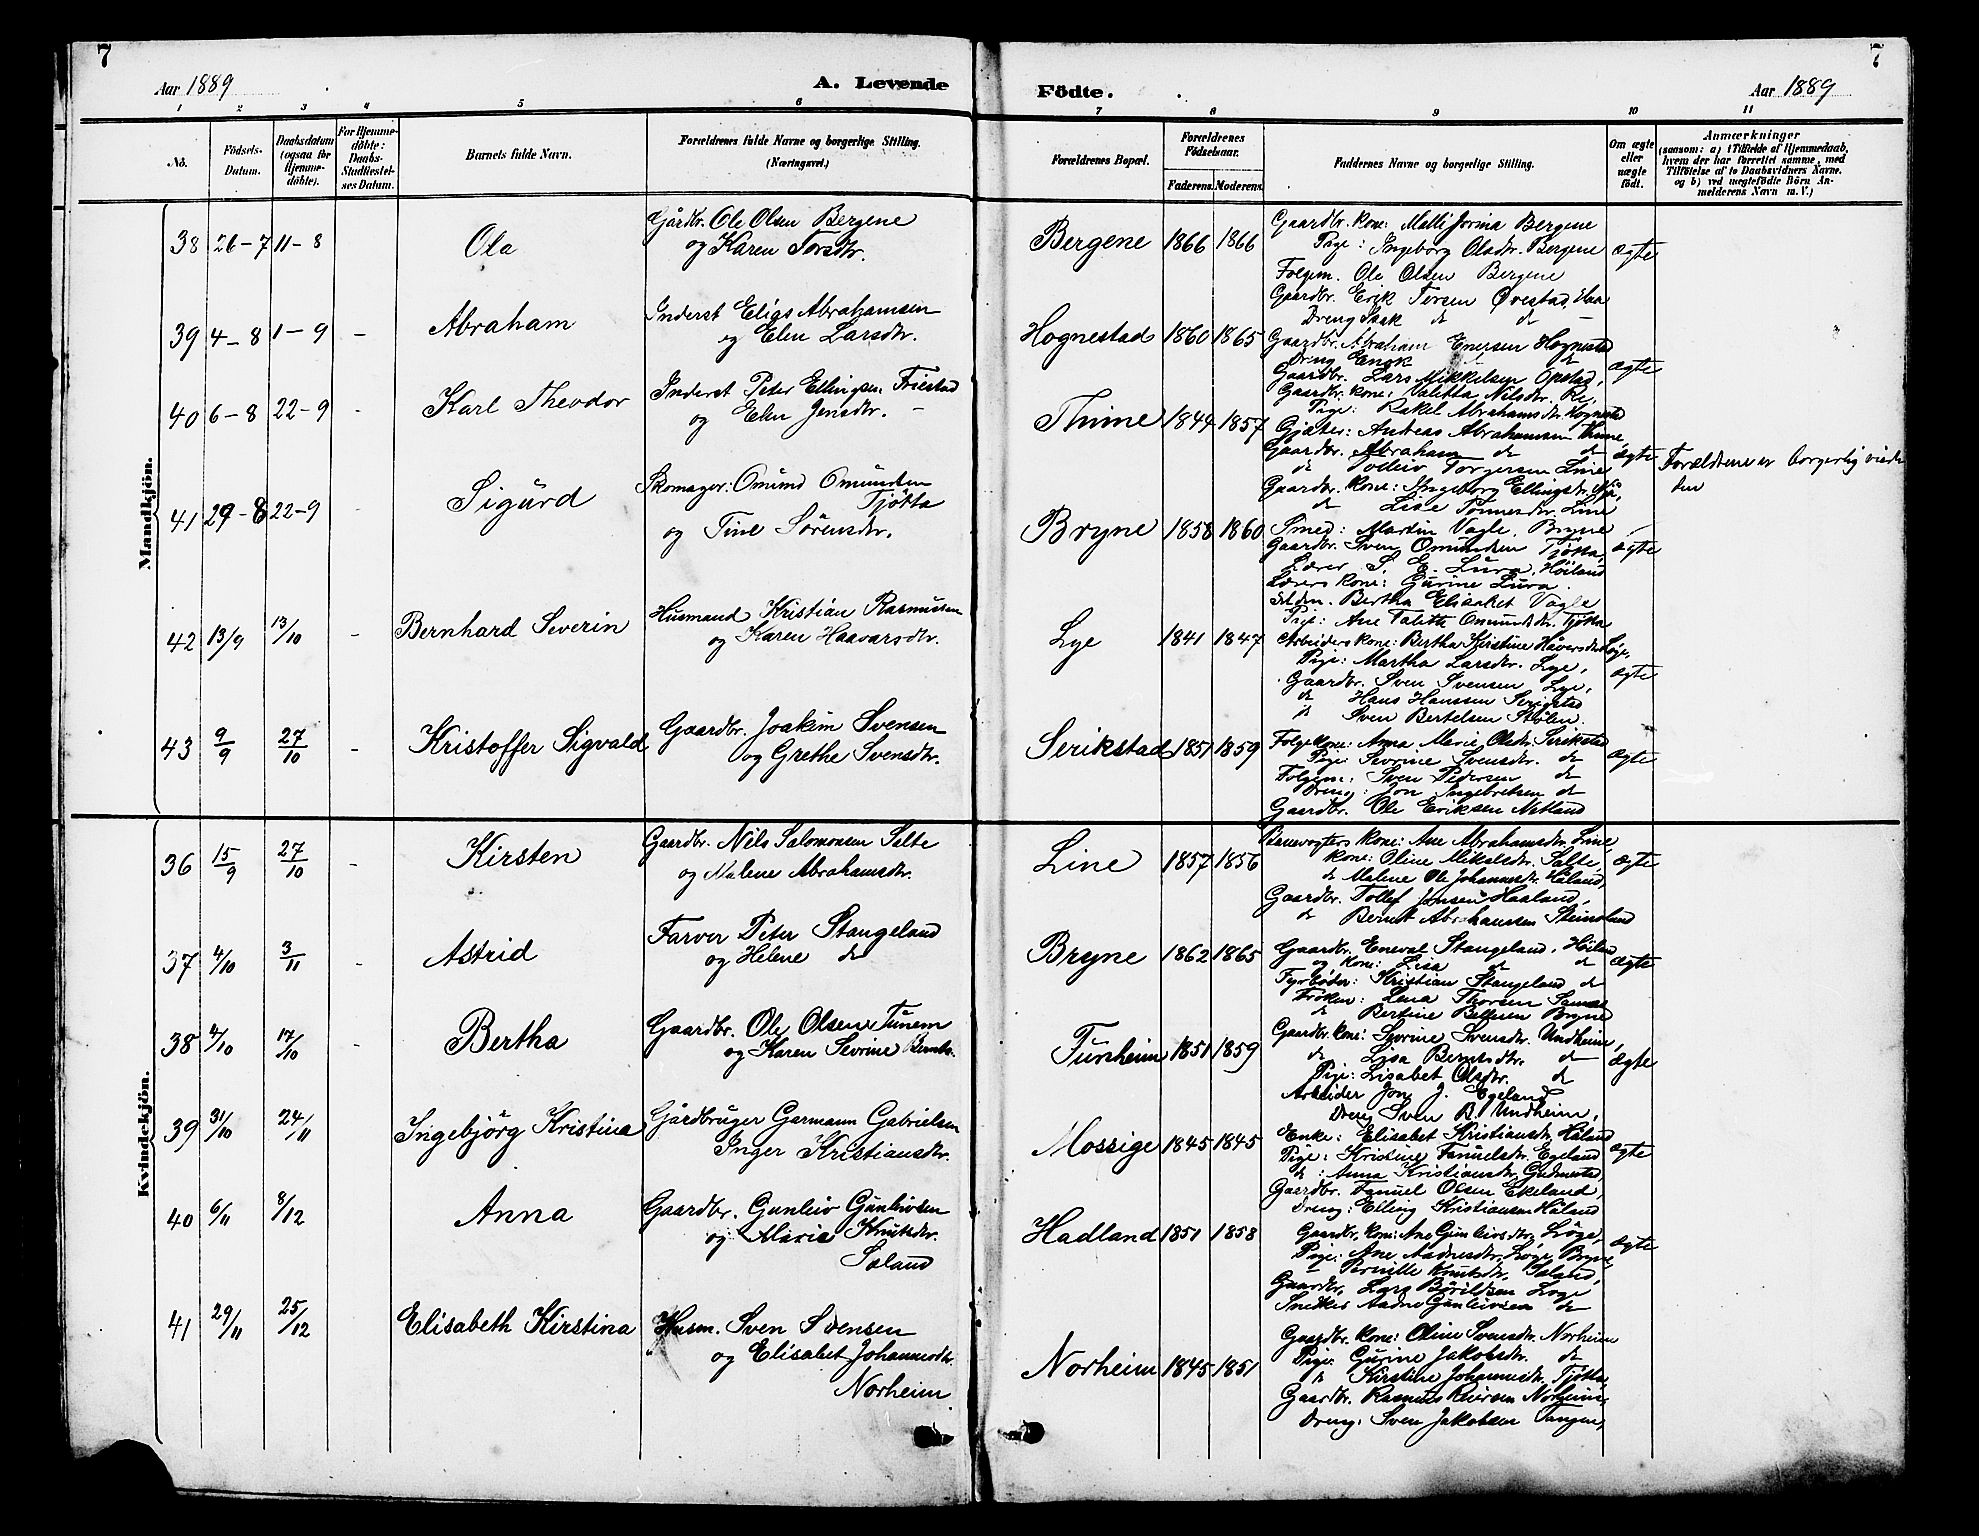 7
7
Aar 1889
A. Levende
Födte.
Aar 1889
1 2 3 4 5 6 7 8 9 10 11
No.
Födsels-Datum.
Daabsdatum (ogsaa for Hjemme-döbte).
For Hjemme-döbte: Daabs-Stadfæstel-ses Datum.
Barnets fulde Navn.
Forældrenes fulde Navne og borgerlige Stilling. (Næringsvei.)
Forældrenes Bopæl.
Forældrenes Födselsaar.
Faderens. Moderens.
Faddernes Navne og borgerlige Stilling.
Om ægte eller uægte födt.
Anmærkninger
(saasom: a) i Tilfælde af Hjemmedaab, hvem der har forrettet samme, med Tilföielse af to Daabsvidners Navne, og b) ved uægtefödte Börn An-melderens Navn m. V.)
Mandkjön.
38 26-7 11-8 Ola
Gårdbr. Ole Olsen Bergene
og Karen Torsdtr.
Bergene 1866 1866
Gaardbr. kone: Malli Jorina Bergene
Pige: Ingeborg Olsdtr. Bergene
Folgem. Ole Olsen Bergene
Gaardbr. Erik Torsen Ovestad, Haa
Dreng Isak do do -
ægte
39 4-8 1-9 - Abraham
Inderst Elias Abrahamsen
og Elen Larsdtr.
Hognestad 1860 1865
Gaardbr. Abraham Enersen Hognestad
Dreng Enok do
Gaardbr. Lars Mikkelsen Opstad,
Gaardbr. kone: Valitta Nilsdtr. Re,
Pige: Rakel Abrahamsdtr. Hognestad
ægte
40 6-8 22-9 - Karl Theodor
Inderst Peter Ellingsen Friestad
og Elen Jensdtr. -
Thime 1844 1857
Gjæter: Andreas Abrahamsen Thime,
Gaardbr. Abraham do do
do Tolleiv Torgersen Line
Gaardbr. kone: Ingeborg Ellingsdtr.
do Lise Tonnesdtr. Line
ægte
Forældrene er borgerlig viede
41 29-8 22-9 - Sigurd
Skomager: Omund Omundsen
Tjötta
og Tine Sörensdtr.
Bryne 1858 1860
Smed: Martin Vagle, Bryne
Gaardbr. Sven Omundsen Tjötta,
Lærer S. E. Lura, Höiland
Lærers kone: Gurine Lura
Bertha Elisabet Vagle
Pige: Ane Talitte Omundsdtr. Tjötta
ægte
42 13/9 13/10 - Bernhard Severin
Husmand Kristian Rasmussen
og Karen Haavarsdtr.
Lye 1841 1847
Arbeiders kone: Bertha Kirstine Håversdtr.
Pige: Martha Larsdtr. Lye,
Gaardbr. Sven Svensen Lye,
do Hans Hanssen Serigstad
do Sven Bertelsen Stölen.
ægte
43 9/9 27/10 - Kristoffer Sigvald
Gaardbr. Joakim Svensen
og Grethe Svensdtr.
Serikstad 1851 1859
Folgekone: Anna Marie Olsdtr. Serikstad
Pige: Sevrine Svensdtr. do
Folgem: Sven Pedersen do
Dreng: Jon Ingebretsen do
Gaardbr. Ole Eriksen Netland
ægte
Kvindekjön.
36 15/9 27/10 - Kirsten
Gaardbr. Nils Salomonsen Selte
og Malene Abrahamsdtr.
Line 1857 1856
Banevogters kone: Ane Abrahamsdtr. Line,
kone: Oline Mikalsdtr. Salte,
do Malene Ole Johannesdtr. Håland,
Gaardbr. Tollef Jonsen Haaland,
do Bernt Abrahamsen Steinsland
ægte
37 4/10 3/11 - Astrid
Farver Peter Stangeland
og Helene do
Bryne 1862 1865
Gaardbr. Eneval Stangeland, Höiland
og kone: Lisa do do
Fyrböder: Kristian Stangeland do
Fröken: Lena Thorsen
do Bertine Bryne
ægte
38 4/10 17/10 Bertha
Gaardbr. Ole Olsen Tunem
og Karen Sevrine Berntsdtr.
Tunheim 1851 1859
Gaardbr. kone: Sevrine Svensdtr. Undheim,
do Lisa Berntsdtr. do
Pige: Lisabet Olsdtr. do
Arbeider Jon J. Egeland
Dreng Sven B. Undheim,
ægte
39 31/10 24/11 Ingebjörg Kristina
Gårdbruger Garmann Gabrielsen
Inger Kristiansdtr.
Mossige 1845 1845
Enke: Elisabet Kristiansdtr. Håland
Pige: Kristine Samuelsdtr. Egeland
do: Anna Kristiansdtr. Gudmestad
Gaardbr. Samuel Olsen Ekeland,
Dreng: Elling Kristiansen Håland
ægte
40 6/11 8/12 Anna
Gaardbr. Gunleiv Gunleivsen
og Marie Knutsdtr.
Saland
Hadland 1851 1858
Gaardbr. kone: Ane Gunleivsdtr. Löge,
Pige: Ane Aadnesdtr. Löge, Bryne
- Pernille Knutsdtr. Saland,
Gaardbr. Lars Böríldsen Loge
Snedker Aadne Gunleivsen do
ægte
41 29/11 25/12 Elisabeth Kirstina
Husm. Sven Svensen
og Elisabet Johannesdtr.
Norheim
Norheim 1845 1851
Gaardbr. kone: Oline Svensdtr. Norheim
Pige: Gurine Jakobsdtr. do
do Kirstine Johannesdtr. Tjötta,
Gaardbr. Rasmus Reiersen Norheim,
Dreng: Sven Jakobsen Tangen,